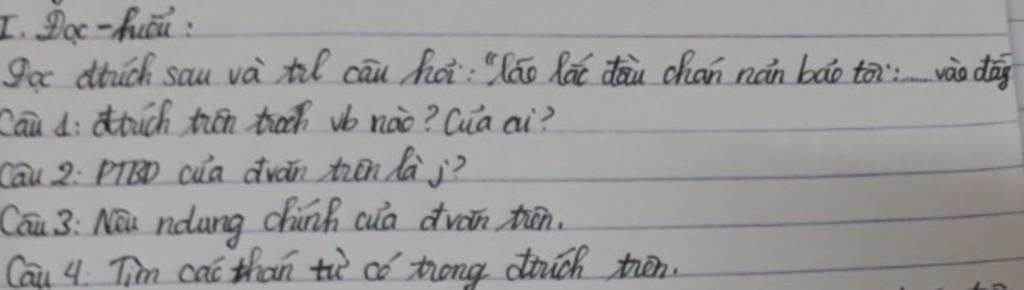 I. Đọc - hiểu :
Đọc đtrích sau và trl câu hỏi : "lão lắc đầu chán nản bảo tôi : .... vào đấy
Câu 1: đtrích trên trích vb nào? Của ai?
Câu 2: PTBD của đvăn trên là j?
Câu 3: Nêu ndung chính của đvăn trên.
Câu 4: Tìm các thán từ có trong đtrích trên.